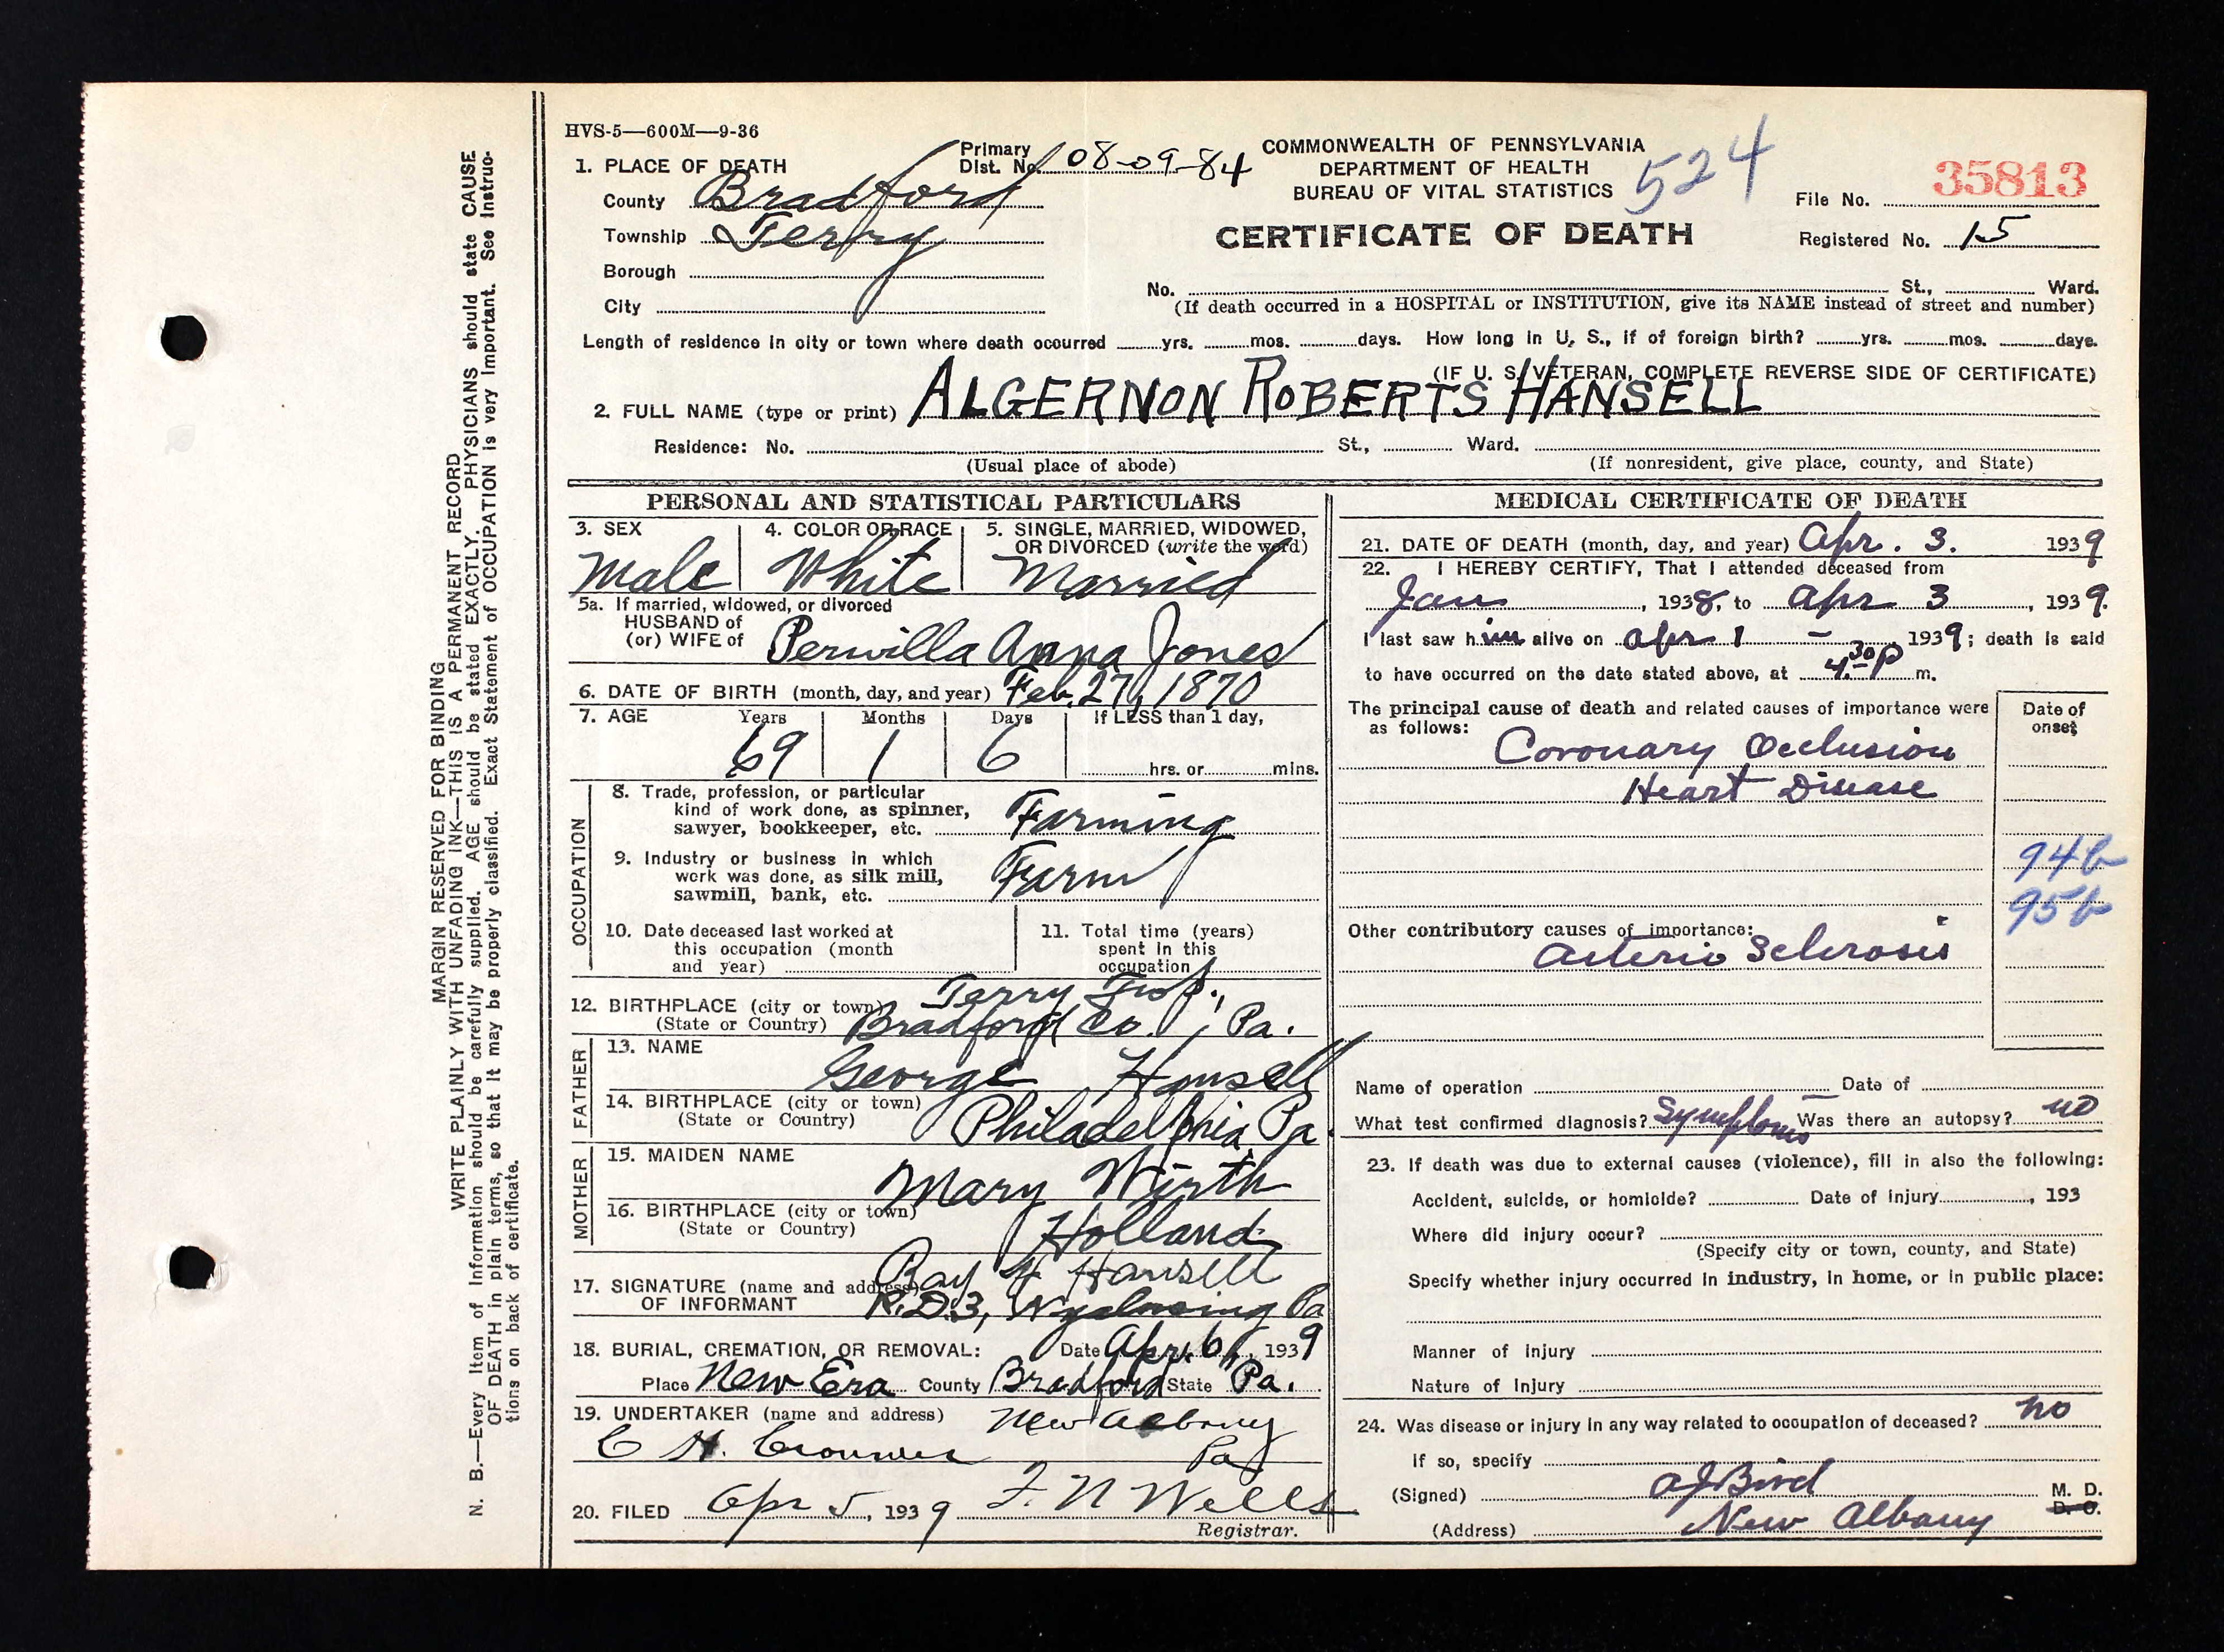 HVS-5—600M—9-36
1. PLACE OF DEATH
Primary
Dist. No. 08-09-84
County Bradford
Township Terry
Borough
City
COMMONWEALTH OF PENNSYLVANIA
DEPARTMENT OF HEALTH
BUREAU OF VITAL STATISTICS
524
CERTIFICATE OF DEATH
File No. 35813
Registered No. 15
No. St., Ward.
(If death occurred in a HOSPITAL or INSTITUTION, give its NAME instead of street and number)
Length of residence in city or town where death occurred yrs. mos. days. How long in U. S., if of foreign birth? yrs. mos. days.
(IF U. S. VETERAN, COMPLETE REVERSE SIDE OF CERTIFICATE)
2. FULL NAME (type or print) ALGERNON ROBERTS HANSELL
Residence: No. St., Ward.
(Usual place of abode) (If nonresident, give place, county, and State)
PERSONAL AND STATISTICAL PARTICULARS
3. SEX
Male
4. COLOR OR RACE
White
5. SINGLE, MARRIED, WIDOWED,
OR DIVORCED (write the word)
Married
5a. If married, widowed, or divorced
HUSBAND of
(or) WIFE of Perwilla Anna Jones
6. DATE OF BIRTH (month, day, and year) Feb. 27, 1870
7. AGE Years Months Days If LESS than 1 day,
69 1 6 hrs. or mins.
OCCUPATION
8. Trade, profession, or particular
kind of work done, as spinner,
sawyer, bookkeeper, etc. Farming
9. Industry or business in which
work was done, as silk mill,
sawmill, bank, etc. Farm
10. Date deceased last worked at
this occupation (month
and year)
11. Total time (years)
spent in this
occupation
12. BIRTHPLACE (city or town) Terry Twp.,
(State or Country) Bradford Co., Pa.
FATHER
13. NAME
George Hansell
14. BIRTHPLACE (city or town)
(State or Country) Philadelphia, Pa.
MOTHER
15. MAIDEN NAME
Mary Wirth
16. BIRTHPLACE (city or town)
(State or Country) Holland
17. SIGNATURE (name and address) Ray H Hansell
OF INFORMANT R.D.3, Wyalusing Pa
18. BURIAL, CREMATION, OR REMOVAL: Date Apr. 6, 1939
Place New Era County Bradford State Pa.
19. UNDERTAKER (name and address) New Albany
C H. Pa
20. FILED Apr 5, 1939 F. N Wells
Registrar.
MEDICAL CERTIFICATE OF DEATH
21. DATE OF DEATH (month, day, and year) Apr. 3. 1939
22. I HEREBY CERTIFY, That I attended deceased from
Jan, 1938, to Apr 3, 1939.
I last saw him alive on Apr 1 – 1939; death is said
to have occurred on the date stated above, at 4.30 P m.
The principal cause of death and related causes of importance were
as follows:
Date of
onset
Coronary Occlusion
Heart Disease
94b
95b
Other contributory causes of importance:
Arterio Sclerosis
Name of operation Date of
What test confirmed diagnosis? Symptoms Was there an autopsy? no
23. If death was due to external causes (violence), fill in also the following:
Accident, suicide, or homicide? Date of injury , 193
Where did injury occur?
(Specify city or town, county, and State)
Specify whether injury occurred in industry, in home, or in public place:
Manner of injury
Nature of injury
24. Was disease or injury in any way related to occupation of deceased? no
If so, specify
(Signed) AJ Bird M. D.
D. O.
(Address) New Albany
MARGIN RESERVED FOR BINDING
WRITE PLAINLY WITH UNFADING INK—THIS IS A PERMANENT RECORD
N. B.—Every item of information should be carefully supplied. AGE should be stated EXACTLY. PHYSICIANS should state CAUSE
OF DEATH in plain terms, so that it may be properly classified. Exact Statement of OCCUPATION is very important. See instruc-
tions on back of certificate.